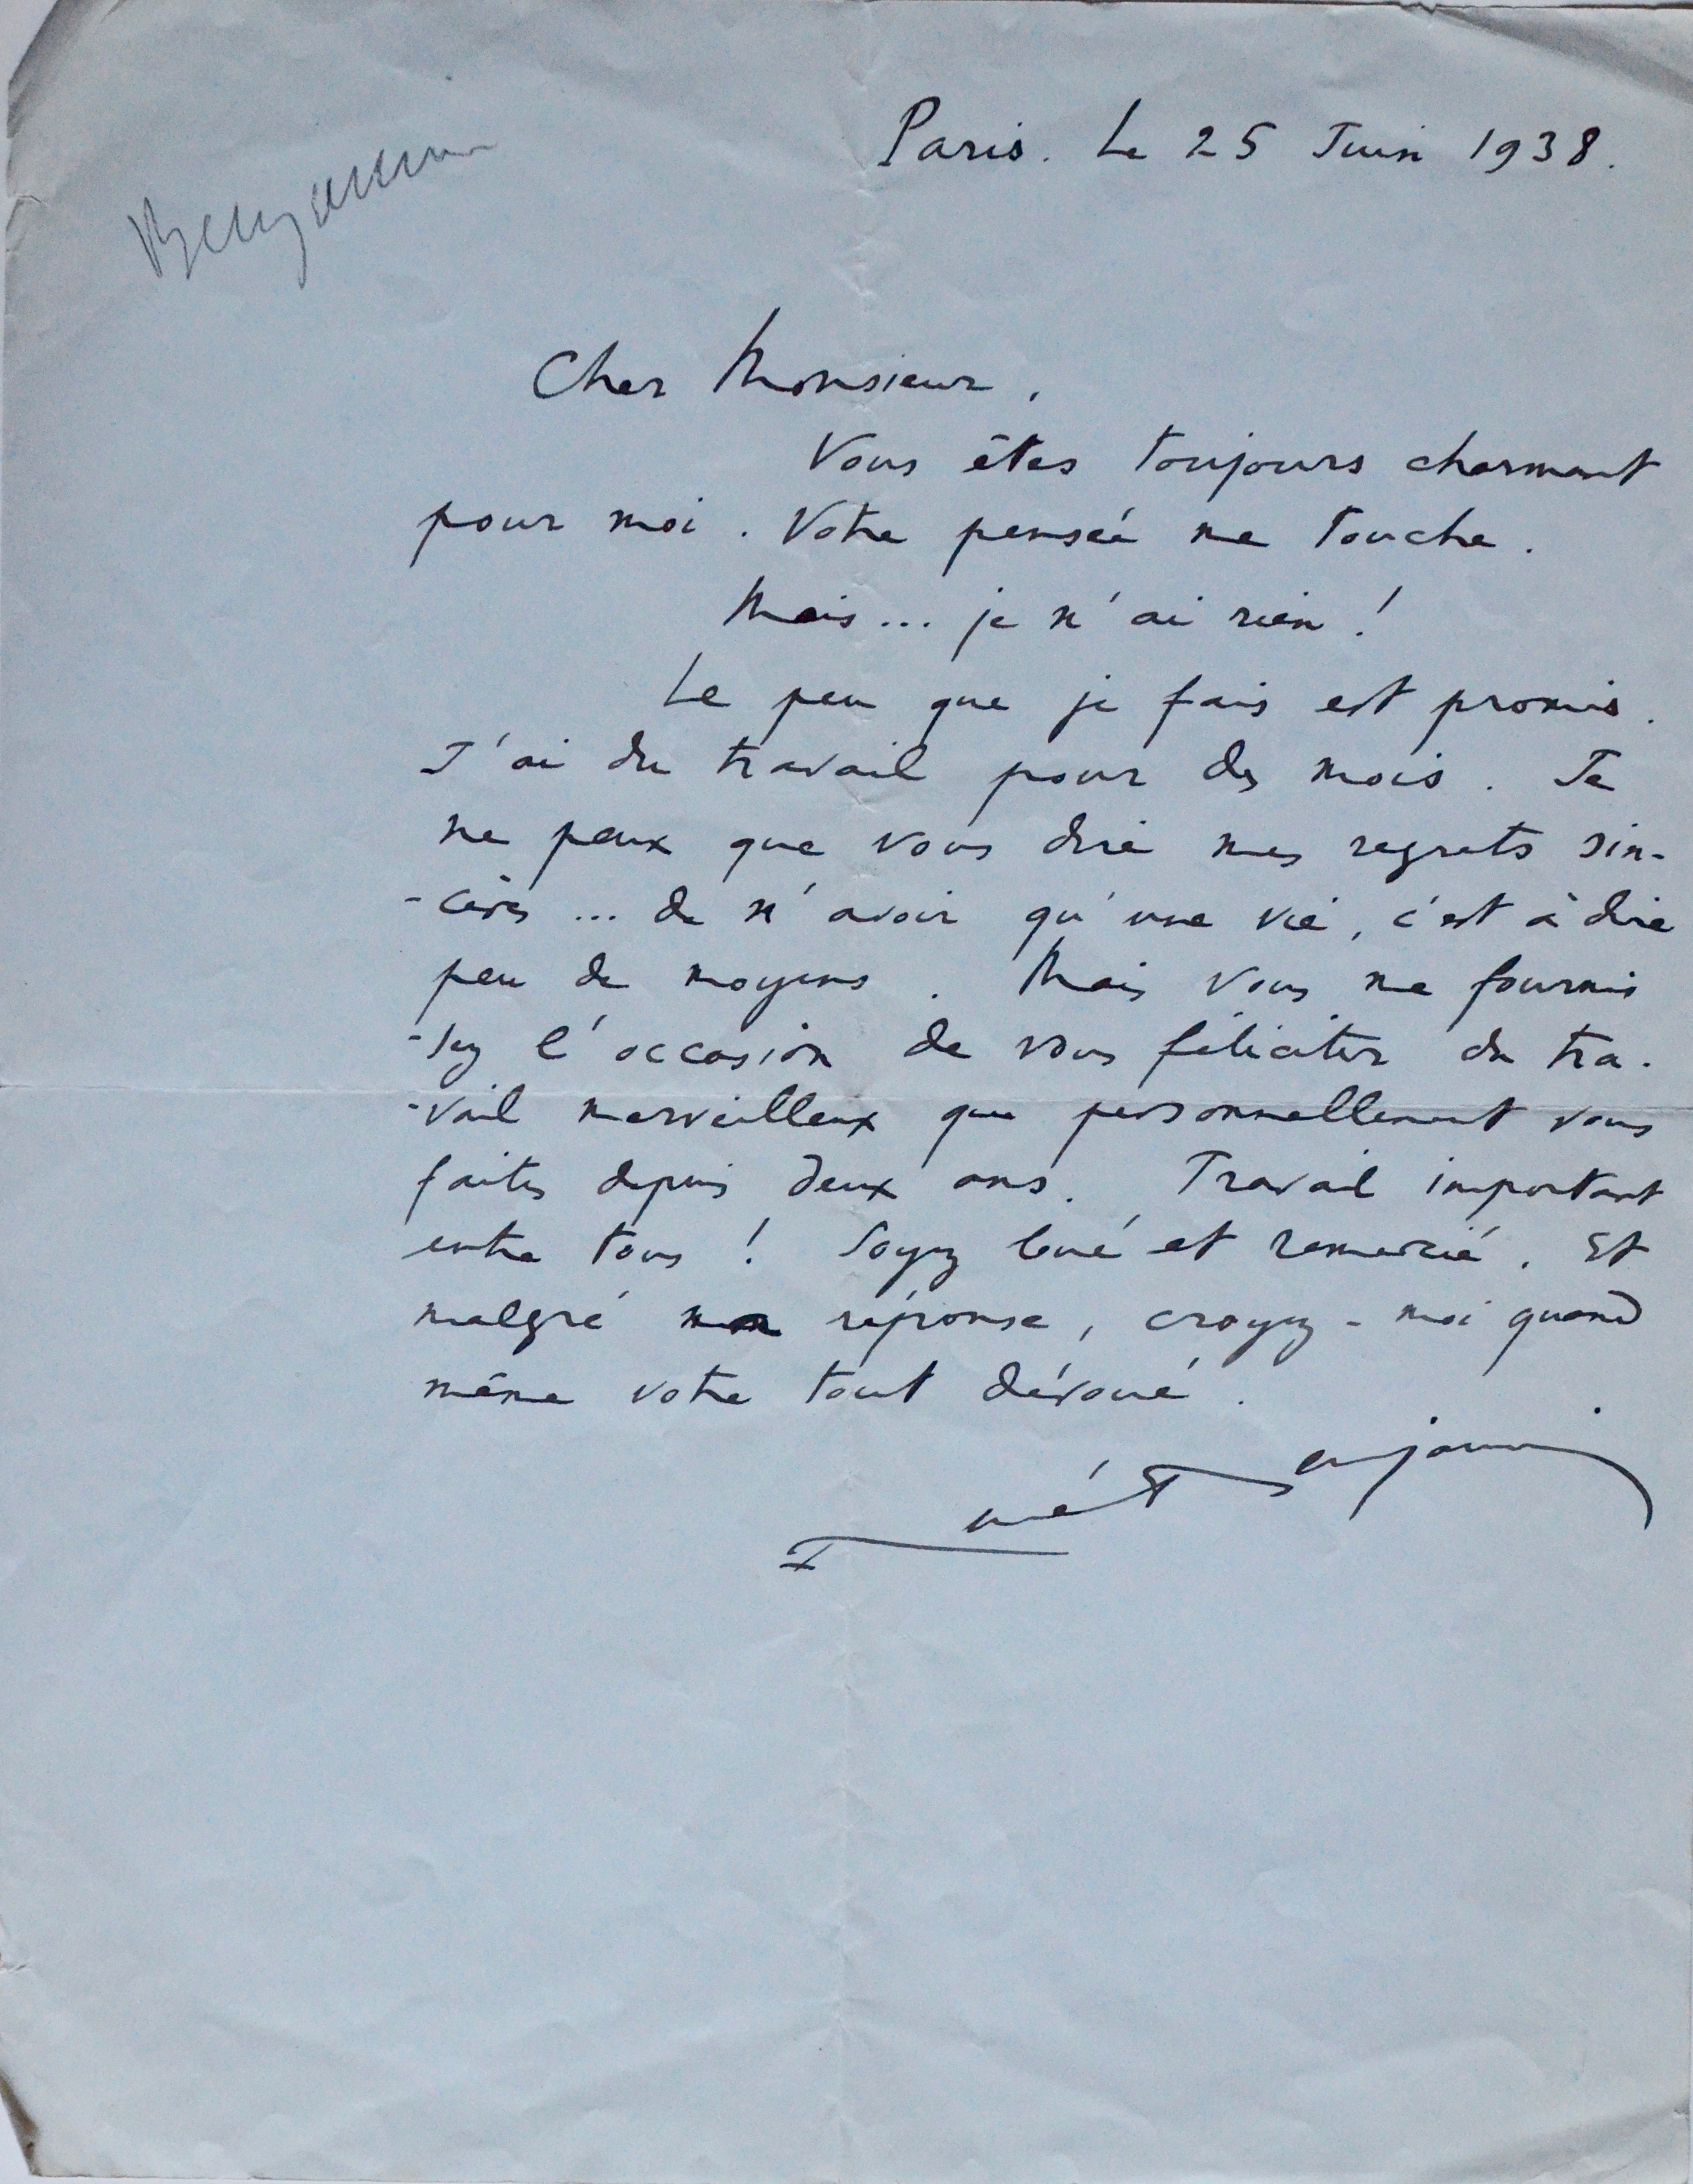 Paris. Le 25 Juin 1938.
Benjamin
Cher Monsieur,
Vous êtes toujours charmant
pour moi. Votre pensée me touche.
Mais... je n'ai rien !
Le peu que je fais est promis.
J'ai du travail pour des mois. Je
ne peux que vous dire mes regrets sin-
-cères ... de n'avoir qu'une vie, c'est à dire
peu de moyens. Mais vous me fournis
-sez l'occasion de vous féliciter du tra-
-vail merveilleux que personnellement vous
faites depuis deux ans. Travail important
entre tous ! Soyez loué et remercié. Et
malgré ma réponse, croyez-moi quand
même votre tout dévoué.
René Benjamin